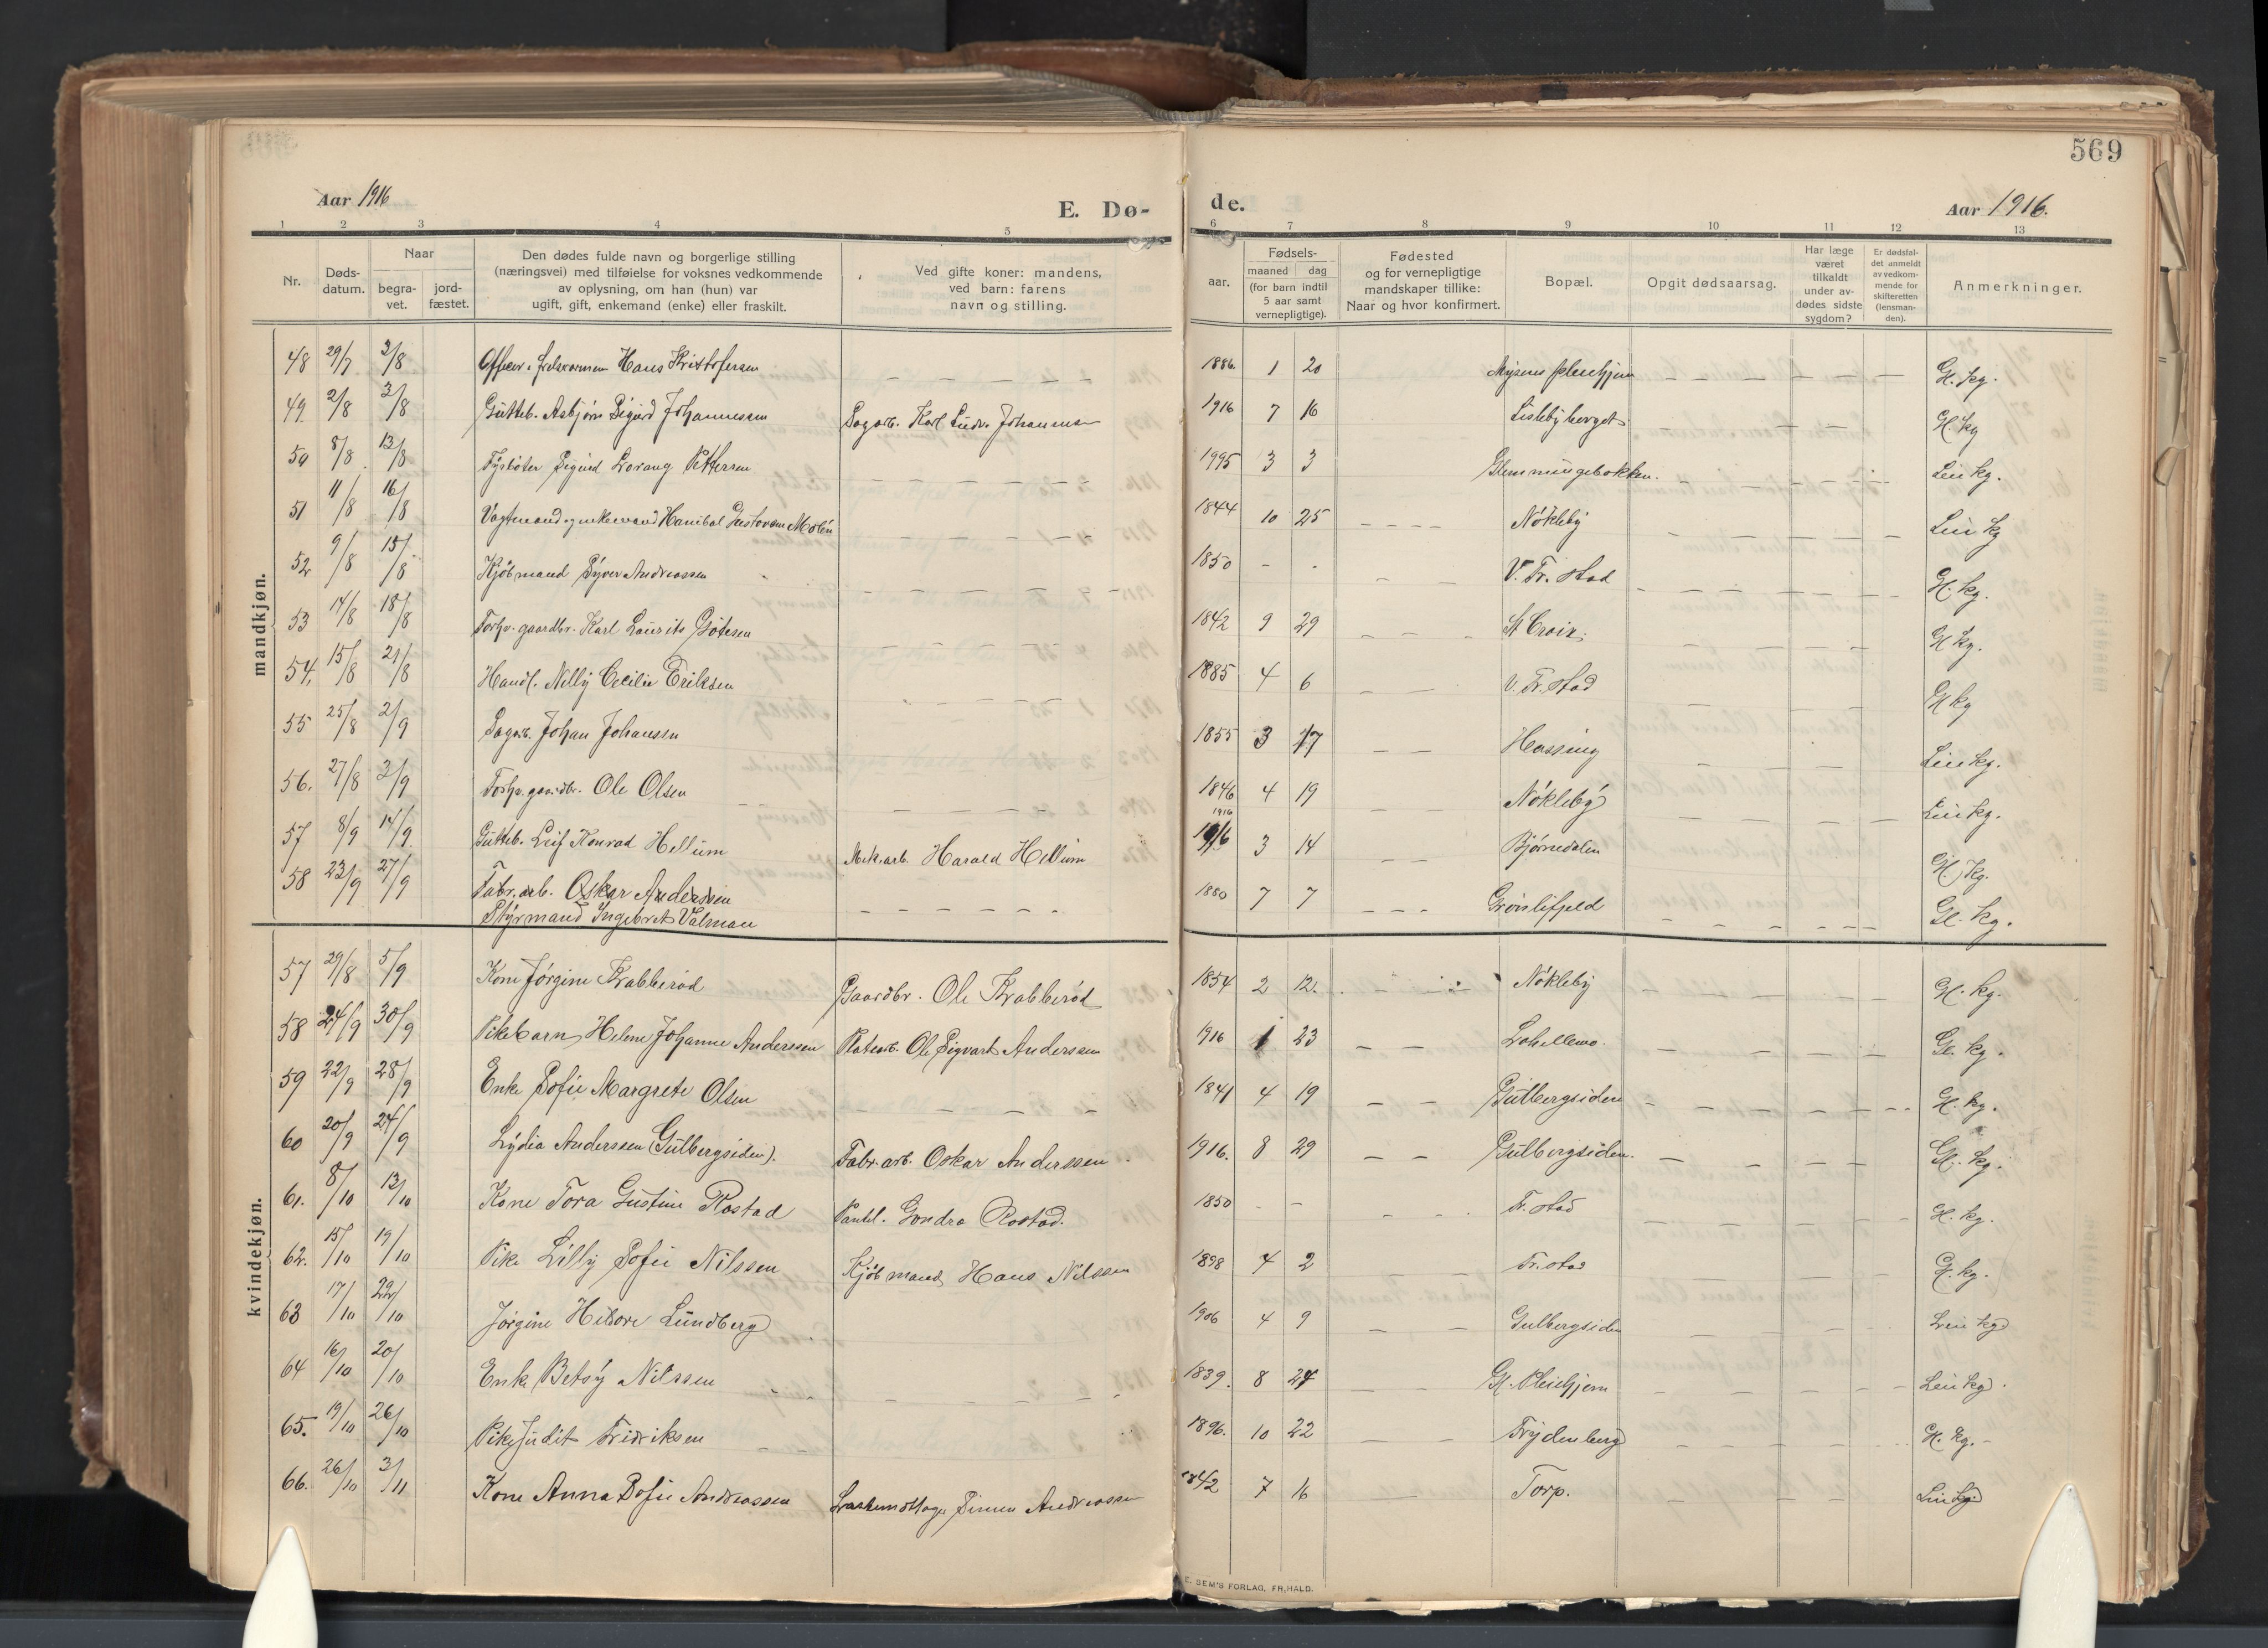 569
Aar 1916
E. Dø-
de.
Aar 1916.
1 2 3 4 5 6 7 8 9 10 11 12 13
Nr.
Døds-
datum.
Naar
begra-
vet.
jord-
fæstet.
Den dødes fulde navn og borgerlige stilling
(næringsvei) med tilføielse for voksnes vedkommende
av oplysning, om han (hun) var
ugift, gift, enkemand (enke) eller fraskilt.
Ved gifte koner: mandens,
ved barn: farens
navn og stilling.
aar.
Fødsels-
maaned dag
(for barn indtil
5 aar samt
vernepligtige).
Fødested
og for vernepligtige
mandskaper tillike:
Naar og hvor konfirmert.
Bopæl.
Opgit dødsaarsag.
Har læge
været
tilkaldt
under av-
dødes sidste
sygdom?
Er dødsfal-
det anmeldt
av vedkom-
mende for
skifteretten
(lensman-
den).
Anmerkninger.
mandkjøn.
48 29/7 2/8 Officer i frelsesarmeen Hans Kristofersen 1886. 1 20 Mysens pleiehjem Gl. kg.
49. 2/8 3/8 Gutteb. Asbjørn Sigurd Johannessen Sagarb. Karl Ludv. Johannessen 1916 7 16 Lislebyberget Gl. kg
50 8/8 13/8 Fyrbøter Sigurd Lorang Pettersen 1995 3 3 Glemmingebakken. Lein kg.
51 11/8 16/8 Vagtmand og enkemand Hanibal Gustavsen Molén 1844 10 25 Nøkleby Lein kg
52 9/8 15/8 Kjøbmand Syver Andreassen 1850 - - V. Fr.stad Gl. kg.
53 14/8 18/8 Forhv. gaardbr. Karl Laurits Gøtesen 1842 9 29 St Croix. Gl kg.
54. 15/8 21/8 Handl. Nelly Cecilie Eriksen 1885 4 6 V. Fr.stad Gl kg
55 25/8 2/9 Sagarb. Johan Johansen 1855 3 17 Hassing Lein kg.
56. 27/8 3/9 Forhv. gaardbr. Ole Olsen 1846 4 19 Nøkleby Lein kg.
57 8/9 14/9. Gutteb. Leif Konrad Hellum Mek.arb. Harald Hellum 1916 1916 3 14 Bjørnedalen Gl. kg.
58 23/9 27/9 Fabr. arb. Oskar Anderssen
Styrmand Ingebret Valman 1880 7 7 Grønlifjeld Gl. kg.
kvindekjøn.
57 29/8 5/9 Kone Jørgine Krabberød Gaardbr. Ole Krabberød 1854 2 12. Nøkleby Gl. kg.
58 24/9 30/9 Pikebarn Helene Johanne Anderssen Platearb. Ole Sigvart Anderssen 1916 1 23 Lahellemo. Gl. kg.
59 22/9 28/9 Enke Sofie Margrete Olsen 1841 4 19 Gulbergsiden Gl. kg.
60 20/9 24/9 Lydia Anderssen (Gulbergsiden). Fabr. arb. Oskar Anderssen 1916. 8 29 Gulbergsiden. Gl. kg.
61. 8/10 13/10 Kone Tora Gustine Rostad Gondro Rostad. 1850 - - Fr.stad Gl. kg.
62. 15/10 19/10 Pike Lilly Sofie Nilssen Kjøbmand Hans Nilssen 1898 4 2 Fr.stad Gl. kg.
63 17/10 22/10 Jørgine Heldore Lundberg 1906 4 9 Gulbergsiden Lein kg
64 16/10 20/10 Enke Betsy Nilssen 1839. 8 24 Gl. Pleiehjem Lein kg.
65. 19/10 26/10 Pike Judit Fridriksen 1896. 10 22 Frydenberg Gl. kg.
66. 26/10 3/11 Kone Anna Sofie Andreassen Lastemottager Simen Andreassen 1842 7 16 Torp. Lein kg
E. SEM'S FORLAG, FR.HALD.